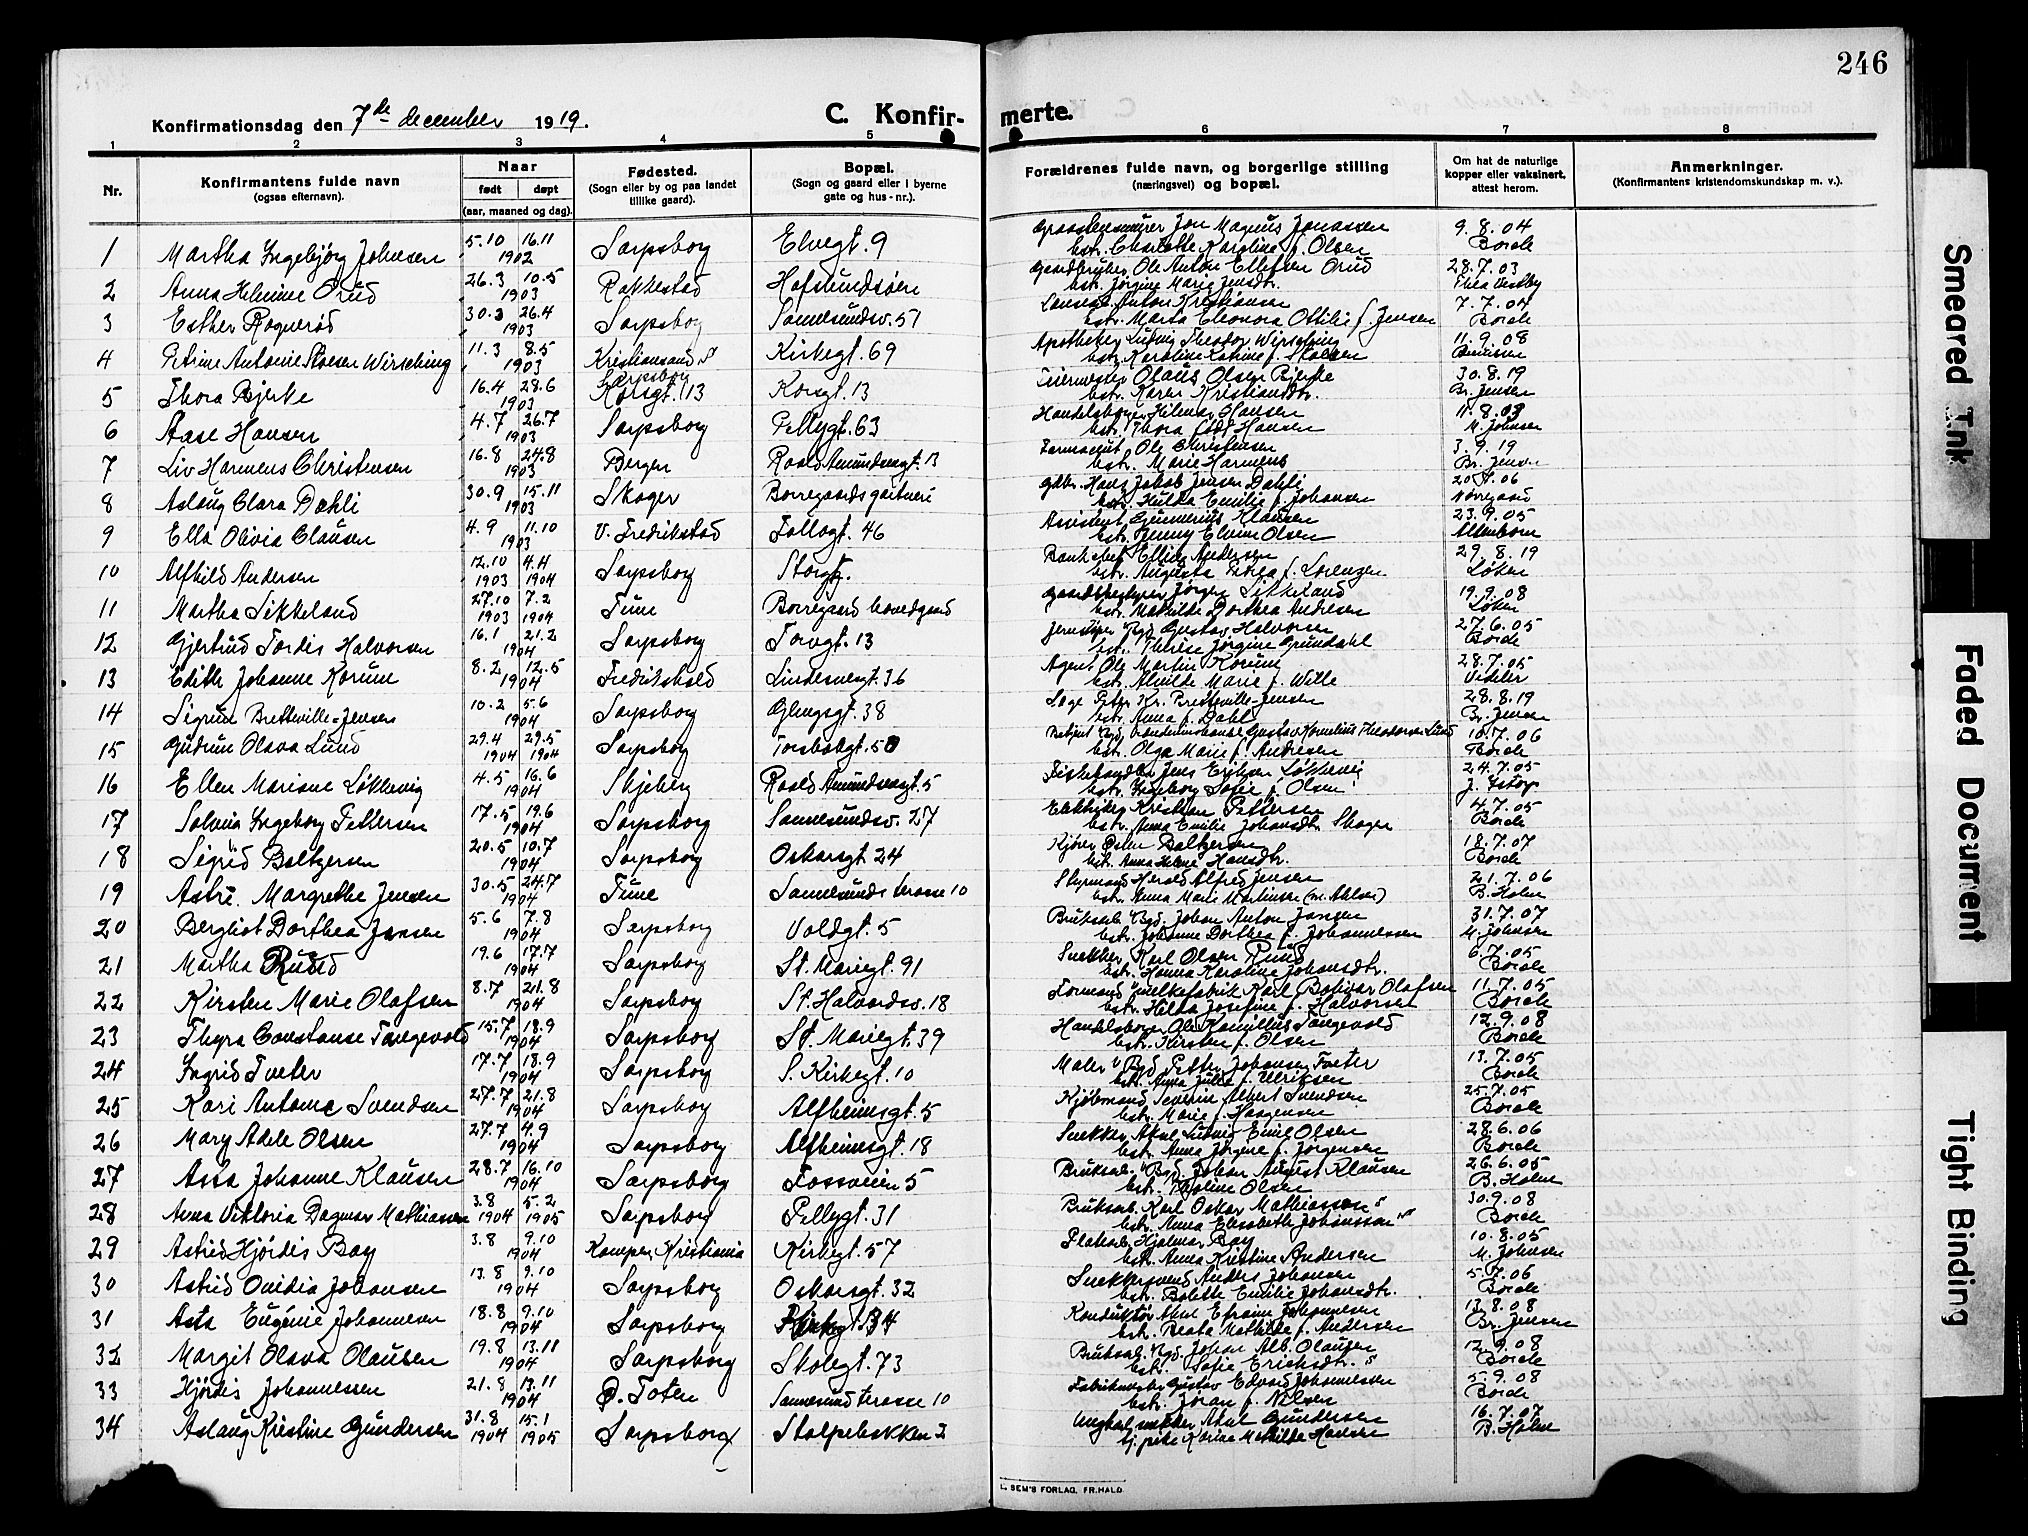 246
Konfirmationsdag den 7de december 1919.
C. Konfir-
merte.
1 2 3 4 5 6 7 8
Nr.
Konfirmantens fulde navn
(ogsaa efternavn).
Naar
født døpt
(aar, maaned og dag).
Fødested.
(Sogn eller by og paa landet
tillike gaard).
Bopæl.
(Sogn og gaard eller i byerne
gate og hus-nr.).
Forældrenes fulde navn, og borgerlige stilling
(næringsvei) og bopæl.
Om hat de naturlige
kopper eller vaksinert,
attest herom.
Anmerkninger.
(Konfirmantens kristendomskundskap m. v.).
1 Martha Ingebjørg Johnsen 5.10 16.11 1902 Sarpsborg Elvegt. 9 Jon Magnus Jonassen 9.8.04
hstr. Charlotte Karoline f. Olsen Borch
2 Anna Helmine Orud 26.3 10.5 1903 Rakkestad Hafslundsøen Gaardbruker Ole Anton Ellefsen Orud 28.7.03
hstr. Jørgine Marie Jensdtr. Thea Vestby
3 Esther 30.3 26.4 1903 Sarpsborg Sannesundsv. 51 Anton Kristiansen 7.7.04
hstr. Marta Eleonora Ottilie f. Jensen Borch
4 Petrine Antonie Stolsen Wirsching 11.3 8.5 1903 Kristiansand S Kirkegt. 69 Apotheker Ludvig Theodor Wirsching 11.9.08
hstr. Karoline Katrine f.
5 Thora Bjerke 16.4 28.6 1903 Sarpsborg Korsgt. 13 Korsgt. 13 Olaus Olsen Bjerke 30.8.19
hstr. Karen Kristiansdtr. Br. Jensen
6 Aase Hansen 4.7 26.7 1903 Sarpsborg Pellygt. 63 Handelsborger Hilmar Hansen 11.8.03
hstr. Thora født Hansen M. Johnsen
7 Liv Harmens Christensen 16.8 24.8 1903 Bergen Roald Amundsensgt. 13 Farmaceut Ole Christensen 3.9.19
hstr. Marie Harmens Br. Jensen
8 Aslaug Clara Dahli 30.9 15.11 1903 Skoger Borregaards gartneri Gdbr. Hans Jakob Jensen Dahli
hstr. Hulda Emilie f. Johansen Nørregaard
9 Ella Olivia Clausen 4.9 11.10 1903 V. Fredrikstad Tollogt. 46 Assistent Gunnerius Klausen 23.9.05
hstr. Jenny Elvine Olsen
10 Alfhild Andersen 12.10 4.4 1903 1904 Sarpsborg Storgt. Bankchef Elling Andersen 29.8.19
hstr. Augusta Thea f. Lorenzen Løken
11 Martha Sikkeland 27.10 7.2 1903 1904 Tune Borregaard hovedgaard Gaardsbestyrer Jørgen Sikkeland 19.9.08
hstr. Mathilde Dorthea Andresen Løken
12 Gjertrud Tordis Halvorsen 16.1 21.2 1904 Sarpsborg Torvgt. 13 Gustav Halvorsen 27.6.05
hstr. Therese Jørgine Grundahl Borch
13 Edith Johanne Korum 8.2 12.5 1904 Fredrikshald Lindemengt. 36 Agent Ole Martin Korum 28.7.05
hstr. Alvilde Marie f. Wille
14 Sigrun Bretteville-Jensen 10.2 5.6 1904 Sarpsborg Glengsgt. 38 Læge Peter Kr. Bretteville-Jensen 28.8.19
hstr. Anna f. Dahl Br. Jensen
15 Gudrun Olava Lund 29.4 29.5 1904 1904 Sarpsborg Torsbekgt. 50 Gustav Kornelius Theodorsen Lund 10.7.06
hstr. Olga Marie f. Andresen Borch
16 Ellen Mariane Løkkevig 4.5 16.6 1904 Skjeberg Roald Amundsensgt. 5 Fiskehandler Jens Eriksen Løkkevig 24.7.05
hstr. Ingeborg Sofie f. Olsen
17 Solveig Ingeborg Pettersen 17.5 19.6 1904 Sarpsborg Sannesundsv. 27 Elektriker Kristian Pettersen 4.7.05
hstr. Anna Emilie Johansdtr. Skager Borch
18 Sigrid Baltzersen 20.5 10.7 1904 Sarpsborg Oskarsgt. 24 Kjører Baltzersen 18.7.07
hstr. Anna Helene Hansdtr. Borch
19 Astri Margrethe Jensen 30.5 24.7 1904 Tune Sannesunds terasse 10 Styrmand Harald Alfred Jensen 21.7.06
hstr. Anna Marie Martinsen B. Holm
20 Bergliot Dorthea Jansen 5.6 7.8 1904 Sarpsborg Voldgt. 5 Bruksarb. Byd. Johan Anton Jansen 31.7.07
hstr. Johanne Dorthea f. Johannessen M. Johnsen
21 Martha Ruud 19.6 17.7 1904 Sarpsborg St. Mariegt. 91 Snekker Karl Olsen Ruud 6.7.05
hstr. Hanna Karoline Johansdtr. Borch
22 Kirsten Marie Olafsen 8.7 21.8 1904 Sarpsborg St. Halvardsv. 18 Formand v. melkefabrik Karl Bolivar Olafsen 11.7.05
hstr. Hilda Josefine f. Halvorsen Borch
23 Thyra Constanse Tangevold 15.7 18.9 1904 Sarpsborg St. Mariegt. 39 Handelsborger Ole Kamillus Tangevold 12.9.08
hstr. Kirsten f. Olsen Borch
24 Ingrid Tveter 17.7 18.9 1904 Sarpsborg S. Kirkegt. 10 Maler v. Byd. Petter Johansen Tveter 13.7.05
hstr. Anna Julie f. Ulriksen Borch
25 Kari Antonie Svendsen 27.7 21.8 1904 Sarpsborg Alfheimsgt. 5 Kjøbmand Severin Albert Svendsen 25.7.05
hstr. Marie f. Haagensen Borch
26 Mary Adele Olsen 27.7 4.9 1904 Sarpsborg Alfheimsgt. 18 Snekker Axel Ludvig Emil Olsen 28.6.06
hstr. Anna Jørgine f. Jørgensen Borch
27 Asta Johanne Klausen 28.7 16.10 1904 Sarpsborg Fossveien 5 Bruksarb. v. Byd. Johan August Klausen 26.6.05
hstr. Olsen B. Holm
28 Anna Viktoria Dagmar Mathiassen 3.8 5.2 1904 1905 Sarpsborg Pellygt. 31 Bruksarb. Karl Oskar Mathiassen s 30.9.08
hstr. Anna Elisabeth Johansson Borch
29 Astrid Hjørdis Bay 3.8 9.10 1904 Kampen, Kristiania Kirkegt. 57 Hjalmar Bay 10.8.05
hstr. Anna Kristine Andersen M. Johnsen
30 Astrid Ovidia Johansen 13.8 9.10 1904 Sarpsborg Oskarsgt. 32 Snekkersvend Anders Johansen 5.7.06
hstr. Bolette Emilie Johansdtr. Borch
31 Asta Eugenie Johannesen 18.8 9.10 1904 Sarpsborg Konduktør Axel Efraim Johannesen 13.8.08
hstr. Beata Mathilde f. Andersen Br. Jensen
32 Margit Olava Olausen 19.8 13.11 1904 Sarpsborg Skolegt. 73 Bruksarb. Byd. Johan Alb. Olausen 12.9.08
hstr. Sofie Eriksdtr. s Borch
33 Hjørdis Johannessen 21.8 13.11 1904 Ø. Toten Sannesund terasse 10 Gustav Edvard Johannessen 5.9.08
hstr. Joran f. Nilsen Borch
34 Aslaug Kristine Gundersen 31.8 15.1 1904 1905 Sarpsborg Stolpebakken 2 Ungkar, snekker Axel Gundersen 16.7.07
tj. pike Karine Mathilde Hansen B. Holm
SEM'S FORLAG, FR.HALD
Smeared Ink
Faded Document
Tight Binding